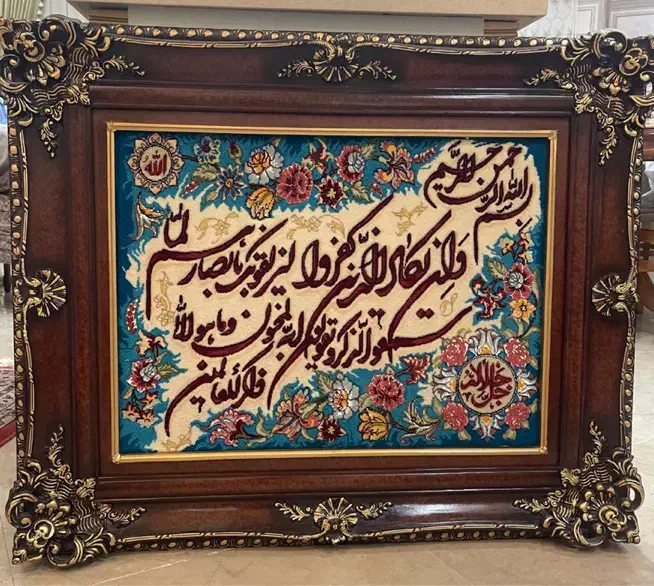 الله
بسم الله الرحمن الرحیم
وان یکاد الذین کفروا لیزلقونک بابصارهم لما
سمعوا الذکر و یقولون انه لمجنون وما هو الا
ذکر للعالمین
جل جلاله